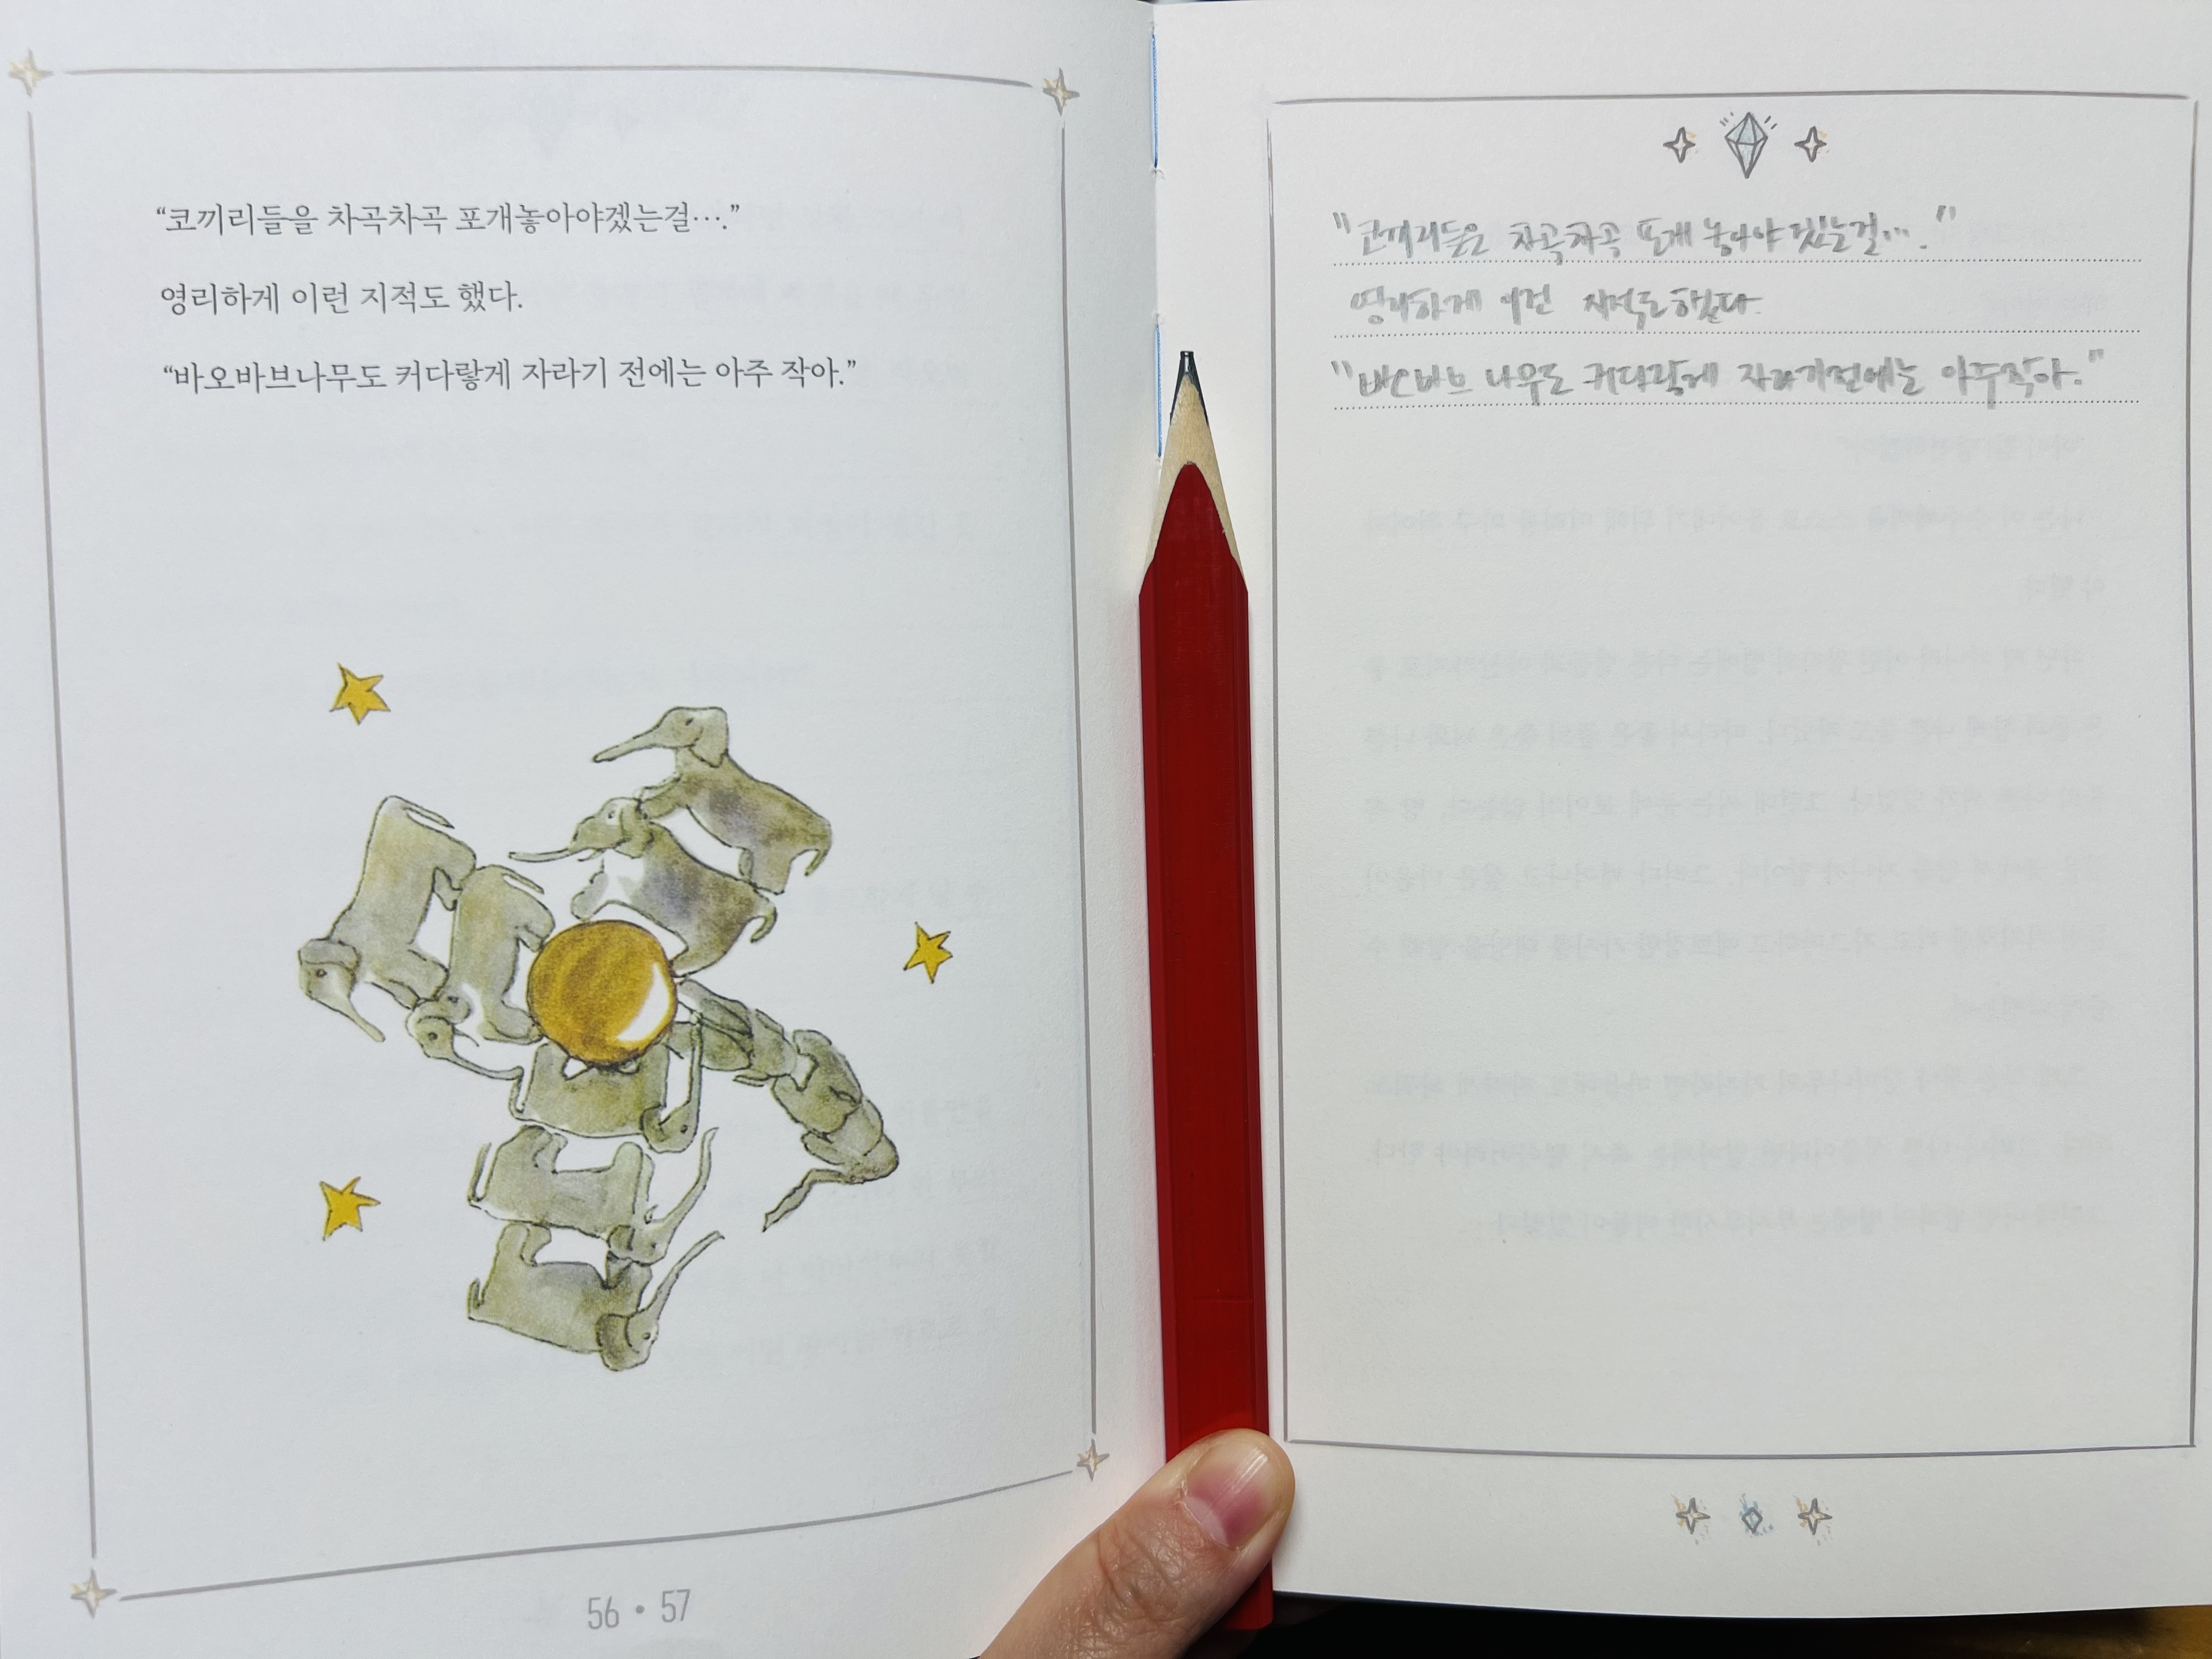 “코끼리들을 차곡차곡 포개놓아야겠는걸⋯.”
영리하게 이런 지적도 했다.
“바오바브나무도 커다랗게 자라기 전에는 아주 작아.”
56 • 57
"코끼리들은 차곡차곡 포개 놓아야겠는걸⋯."
영리하게 이런 지적도 했다.
"바오바브 나무도 커다랗게 자라기전에는 아주작아."